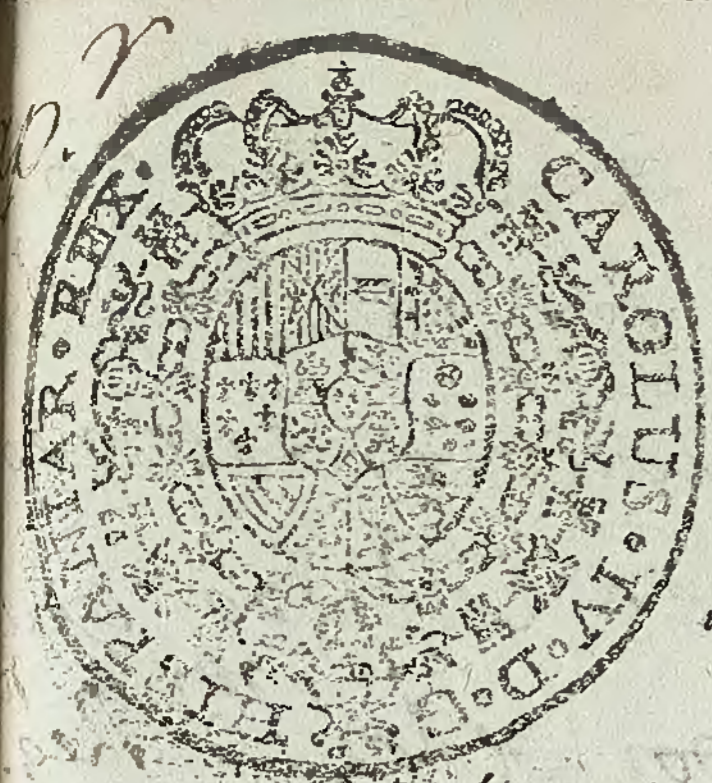 CAROLUS • IV • D • G • HISPANIAR • REX •